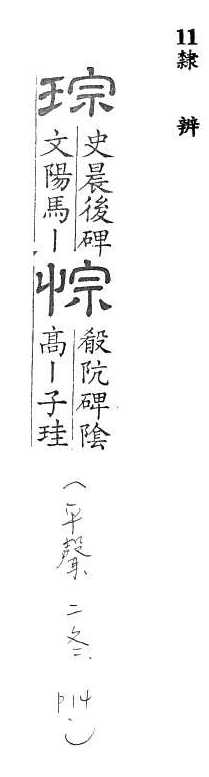 11隸辨
琮
史晨後碑
文陽馬｜
悰
殽阬碑陰
高｜子珪
(平聲 二冬 P14)